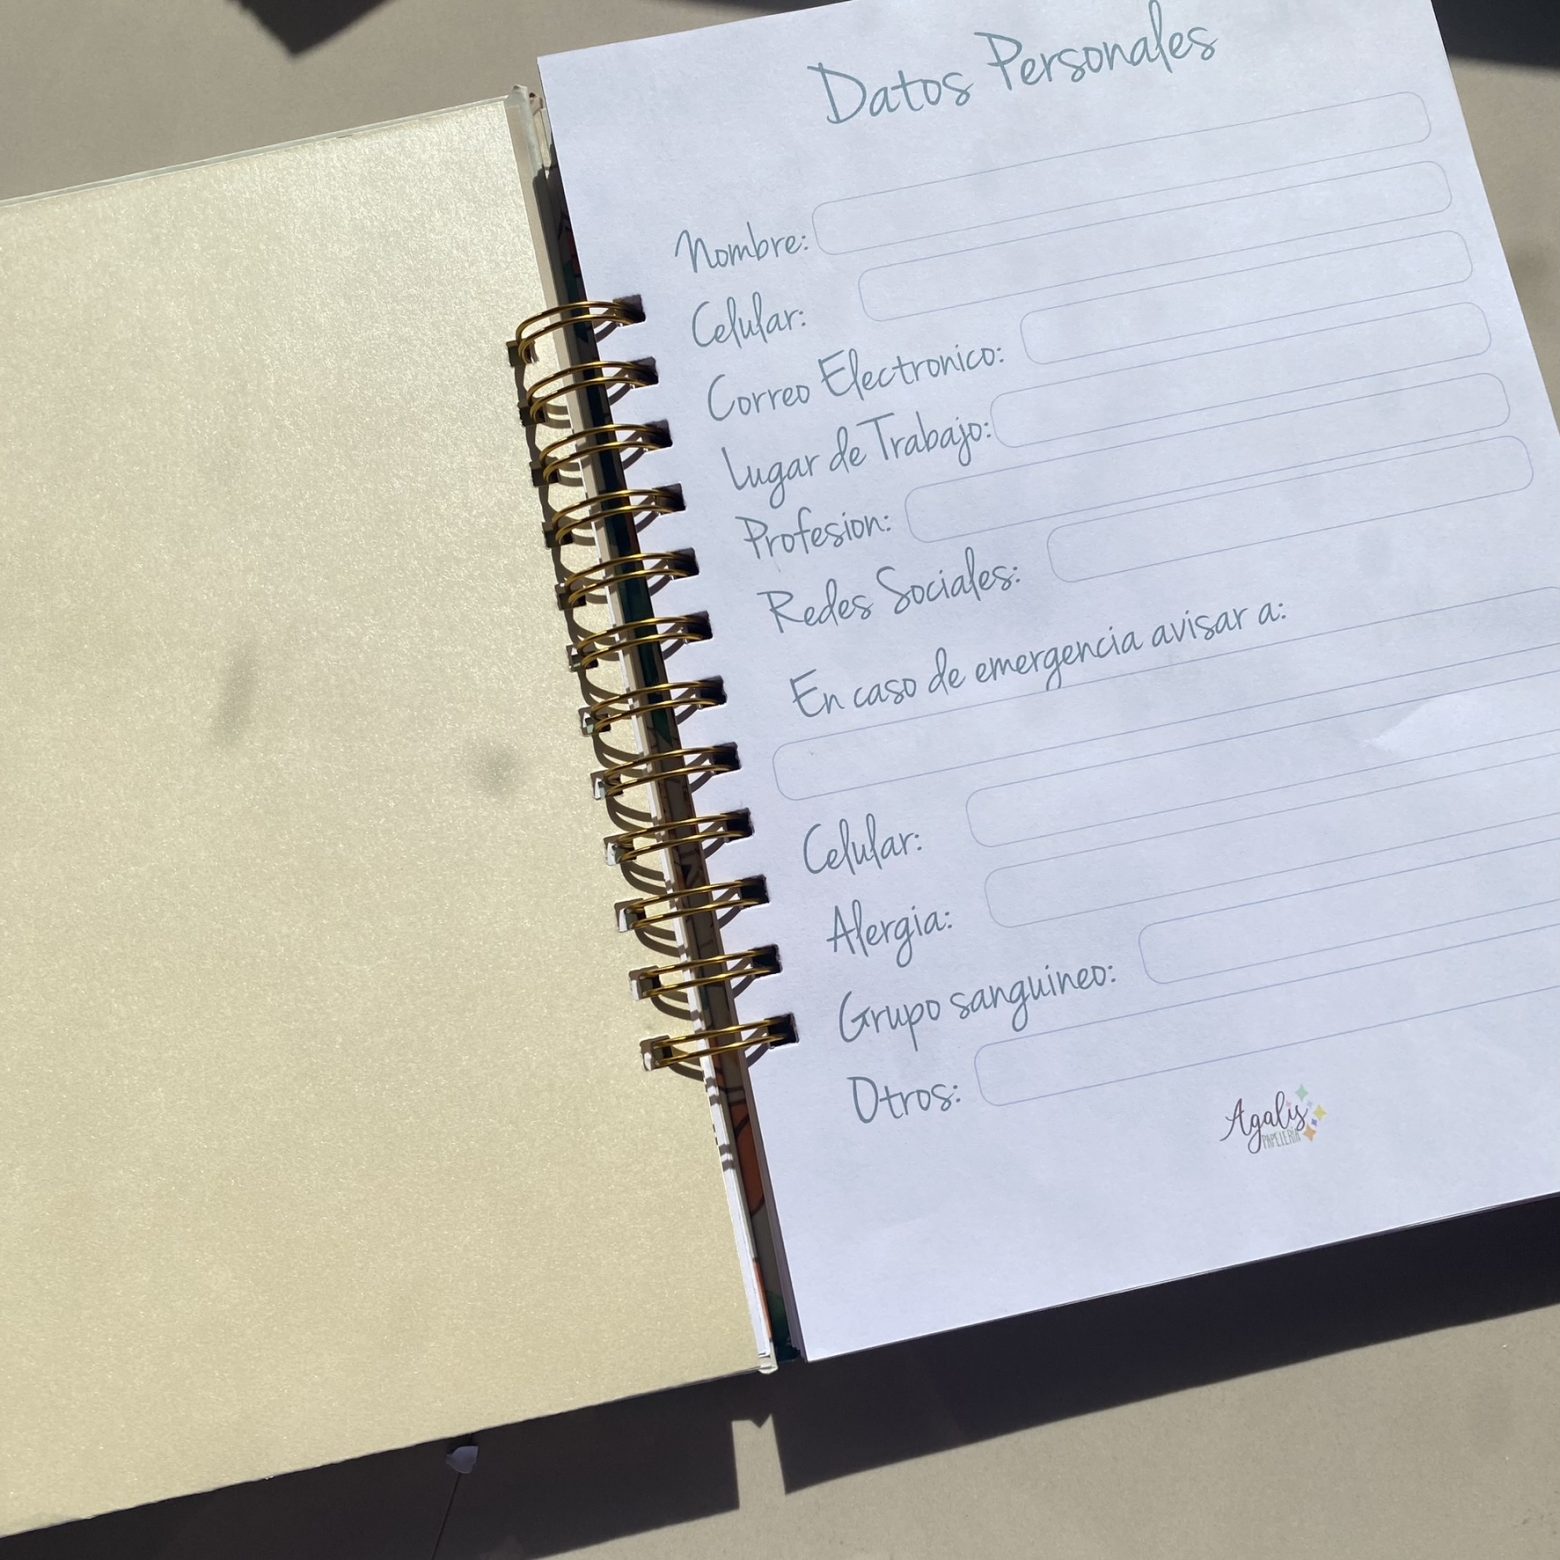 Datos Personales
Nombre:
Celular:
Correo Electronico:
Lugar de Trabajo:
Profesion:
Redes Sociales:
En caso de emergencia avisar a:
Celular:
Alergia:
Grupo sanguineo:
Otros:
Agalis
PAPELERIA